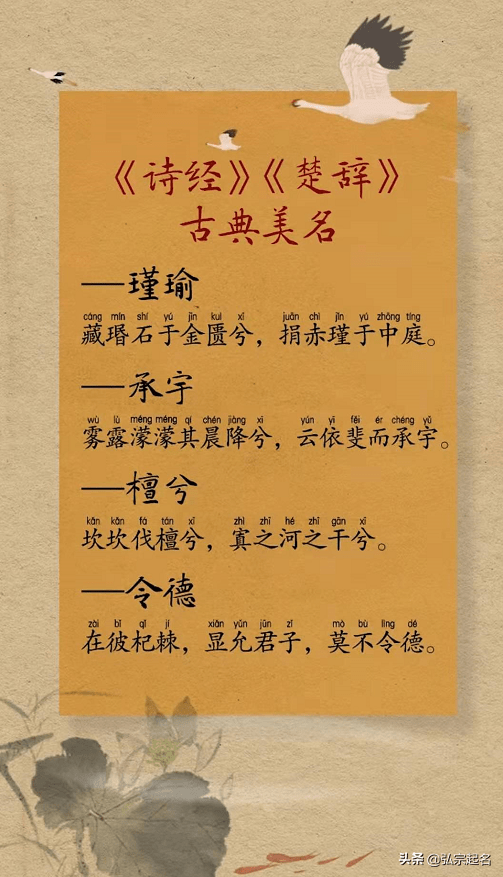 《诗经》《楚辞》
古典美名
—瑾瑜
cáng mín shí yú jīn kuì xī juān chì jǐn yú zhōng tíng
藏瑉石于金匮兮，捐赤瑾于中庭。
—承宇
wù lù méng méng qí chén jiàng xī yún yī fěi ér chéng yǔ
雾露濛濛其晨降兮，云依斐而承宇。
—檀兮
kǎn kǎn fá tán xī zhì zhī hé zhī gàn xī
坎坎伐檀兮，寘之河之干兮。
—令德
zài bǐ qǐ jí xiǎn yǔn jūn zǐ mò bù lìng dé
在彼杞棘，显允君子，莫不令德。
头条 @弘宗起名